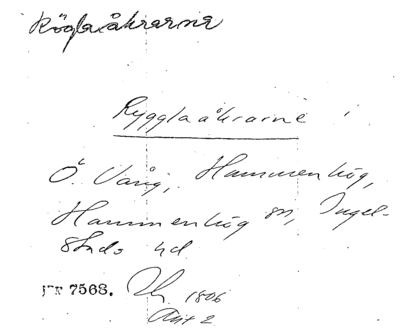 Rögla åkrarne
Ryggla åkrarne
Ö. Vång, Hammenhög,
Hammenhög sn, Ingel-
stads hd
7568. 1806
Akt 2